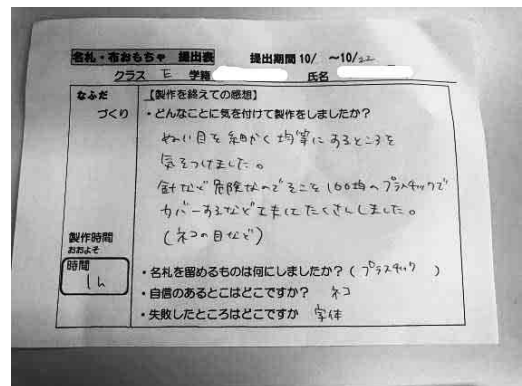 名札・布おもちゃ 提出表 提出期間 10/ ～10/22
クラス E 学籍 氏名
なふだ
づくり
【製作を終えての感想】
・どんなことに気を付けて製作をしましたか？
ぬい目を細かく均等にするところを
気をつけました。
針など危険なのでそこを100均のプラスチックで
カバーするなど工夫はたくさんしました。
(ネコの目など)
製作時間
おおよそ
時間
1h
・名札を留めるものは何にしましたか？(プラスチック )
・自信のあるとこはどこですか？ ネコ
・失敗したところはどこですか 字体